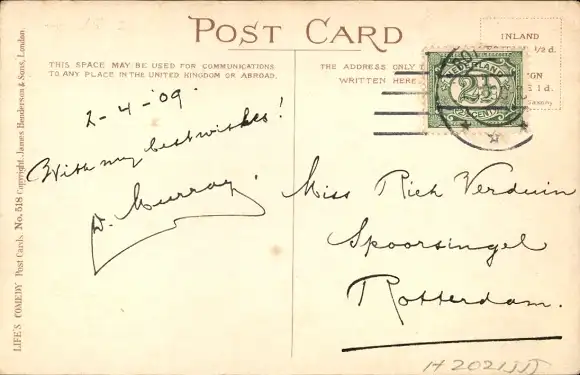 POST CARD
THIS SPACE MAY BE USED FOR COMMUNICATIONS
TO ANY PLACE IN THE UNITED KINGDOM OR ABROAD.
THE ADDRESS ONLY
WRITTEN HERE.
INLAND
½ d.
1 d.
Germany
NEDERLAND
2½
CENT
2-4-'09.
With my best wishes!
D. Murray.
Miss Riek Verduin
Spoorsingel
Rotterdam.
LIFE'S COMEDY Post Cards. No. 518 Copyright. James Henderson & Sons, London.